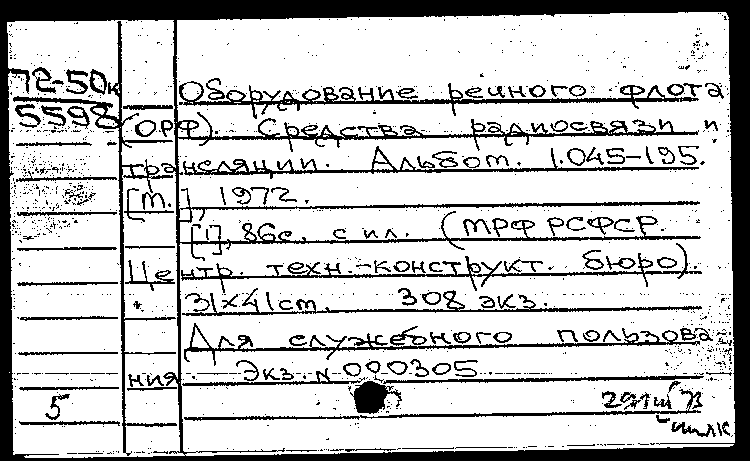 72-50к
5598
Оборудование речного флота
(ОРФ). Средства радиосвязи и
трансляции. Альбом. 1.045-195.
[М.], 1972.
[1], 86с. с ил. (МРФ РСФСР.
Центр. техн.-конструкт. бюро).
31×41 cm. 308 экз.
Для служебного пользова-
ния. Экз. № 000305.
5